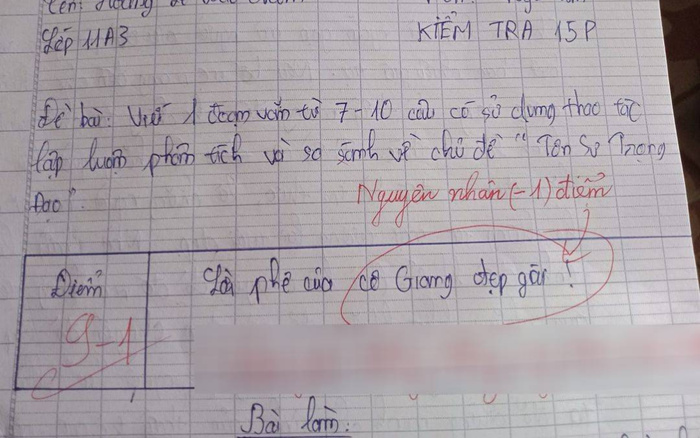 Lớp 11A3
KIỂM TRA 15P
Đề bài: Viết 1 đoạn văn từ 7-10 câu có sử dụng thao tác
lập luận phân tích và so sánh về chủ đề "Tôn Sư Trọng
Đạo".
Nguyên nhân (-1) điểm
Điểm
9-1
Lời phê của cô Giang đẹp gái !
Bài làm: